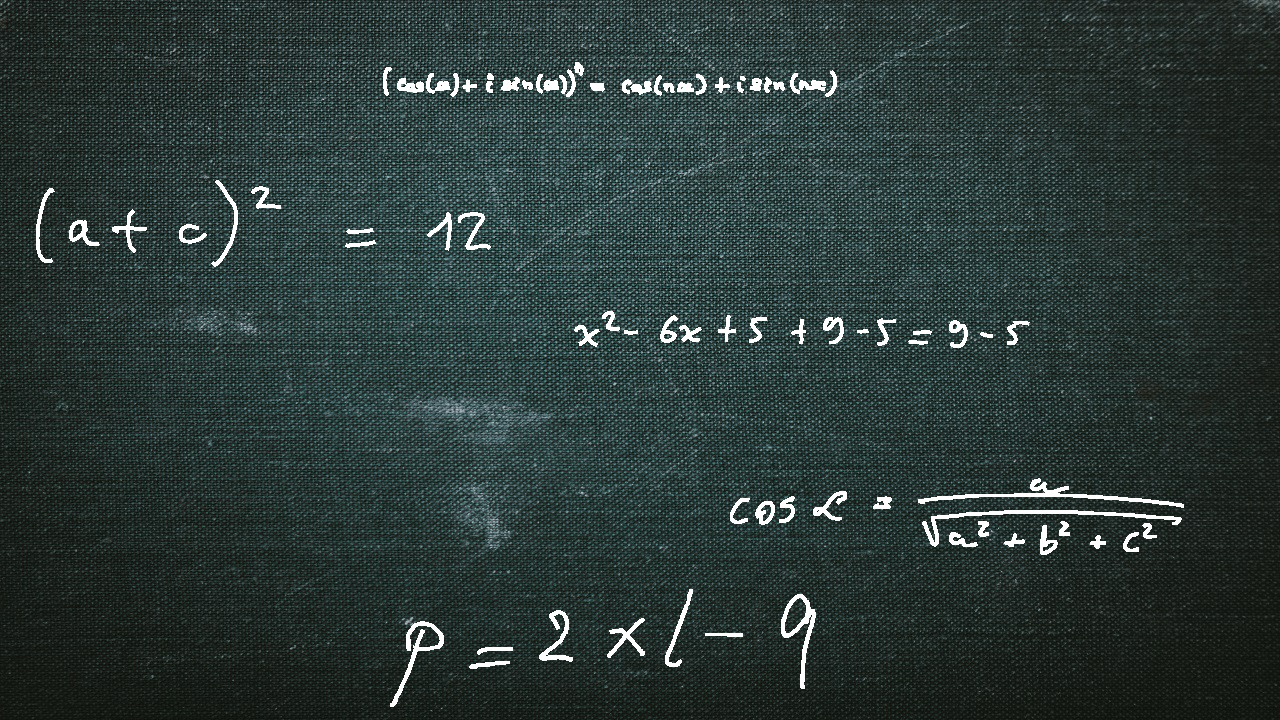 (cos(x) + i sin(x))ⁿ = cos(nx) + i sin(nx)
(a + c)² = 12
x² - 6x + 5 + 9 - 5 = 9 - 5
cos α = a / √(a² + b² + c²)
p = 2 × l - 9